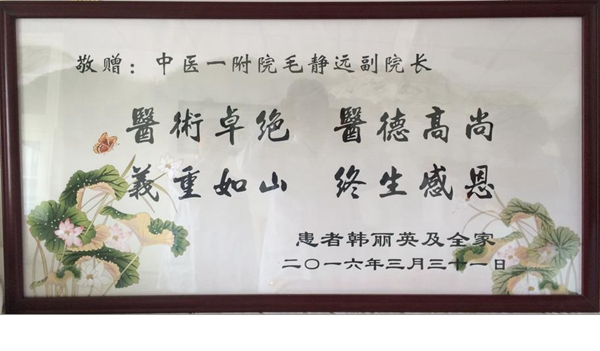 敬赠：中医一附院毛静远副院长
醫術卓绝　醫德高尚
義重如山　终生感恩
患者韩丽英及全家
二〇一六年三月三十一日